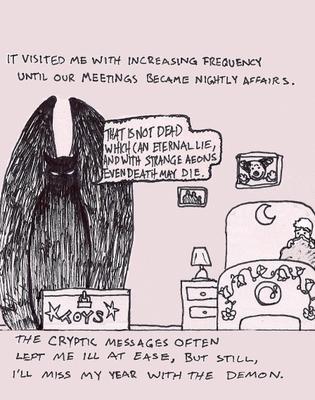 IT VISITED ME WITH INCREASING FREQUENCY
UNTIL OUR MEETINGS BECAME NIGHTLY AFFAIRS.
THAT IS NOT DEAD
WHICH CAN ETERNAL LIE,
AND WITH STRANGE AEONS
EVEN DEATH MAY DIE.
TOYS
THE CRYPTIC MESSAGES OFTEN
LEFT ME ILL AT EASE, BUT STILL,
I'LL MISS MY YEAR WITH THE DEMON.